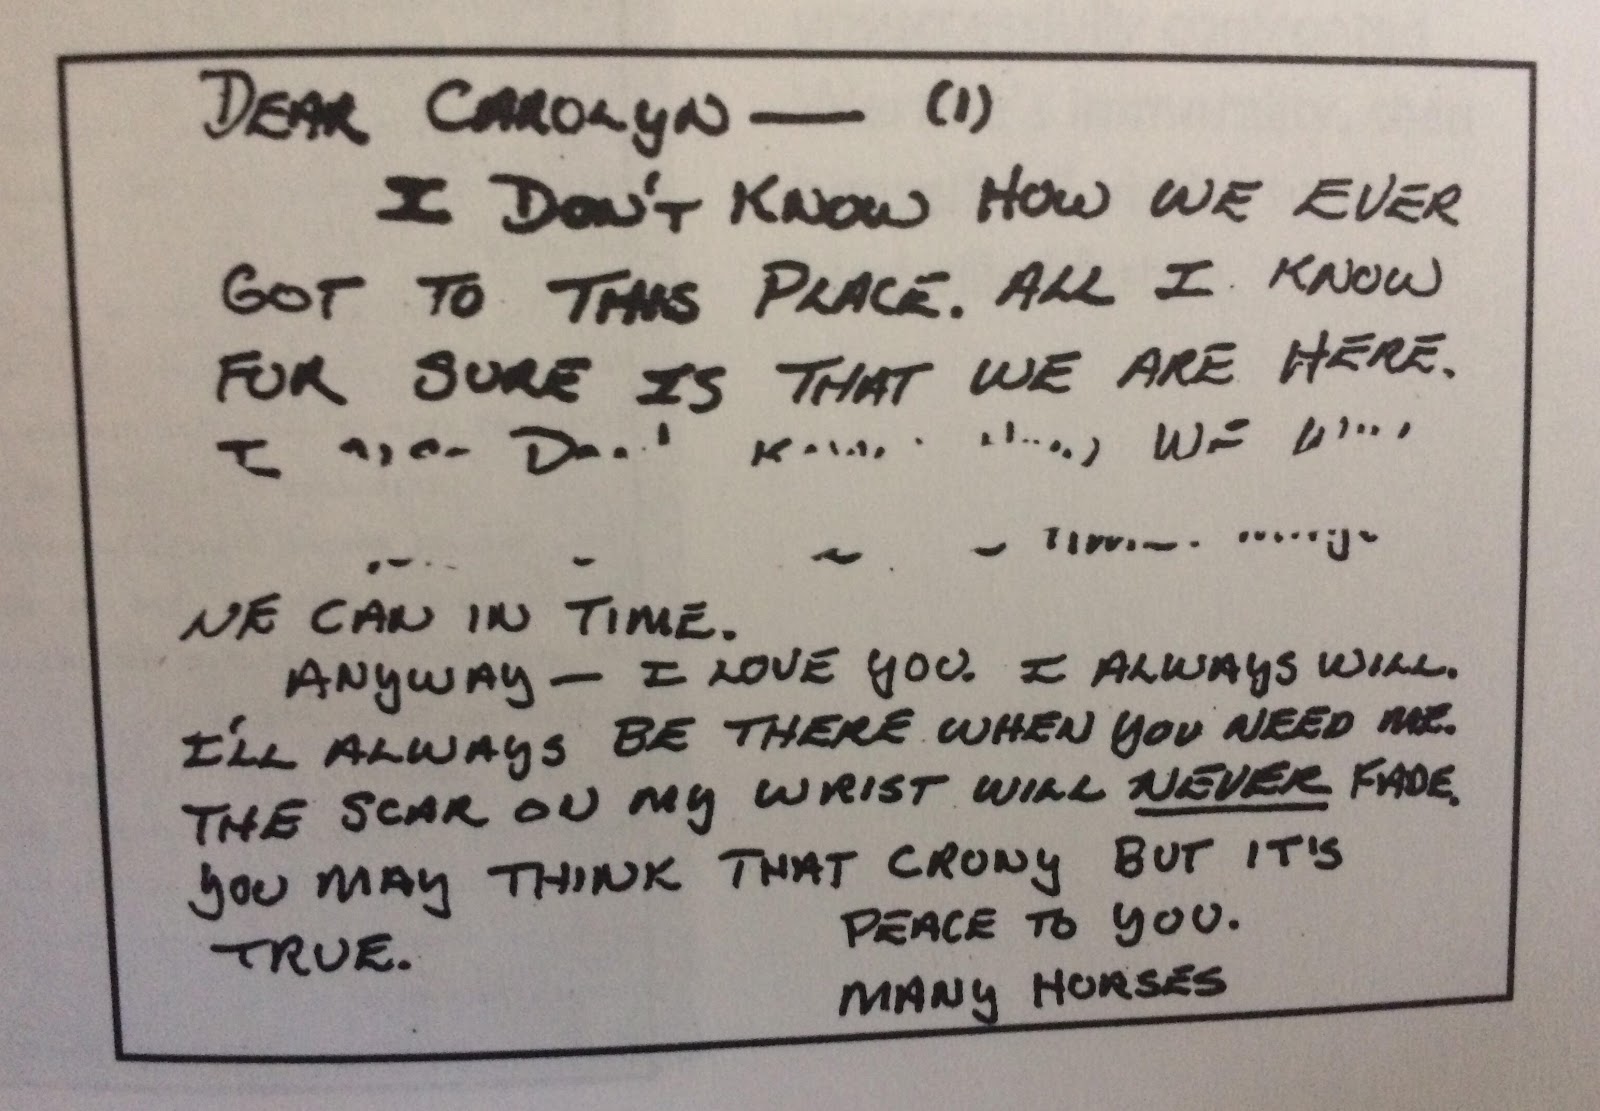 DEAR CAROLYN — (1)
I DON'T KNOW HOW WE EVER
GOT TO THIS PLACE. ALL I KNOW
FOR SURE IS THAT WE ARE HERE.
I WE
WE CAN IN TIME.
ANYWAY — I LOVE YOU. I ALWAYS WILL.
I'LL ALWAYS BE THERE WHEN YOU NEED ME.
THE SCAR ON MY WRIST WILL NEVER FADE.
YOU MAY THINK THAT CRONY BUT IT'S
TRUE.
PEACE TO YOU.
MANY HORSES